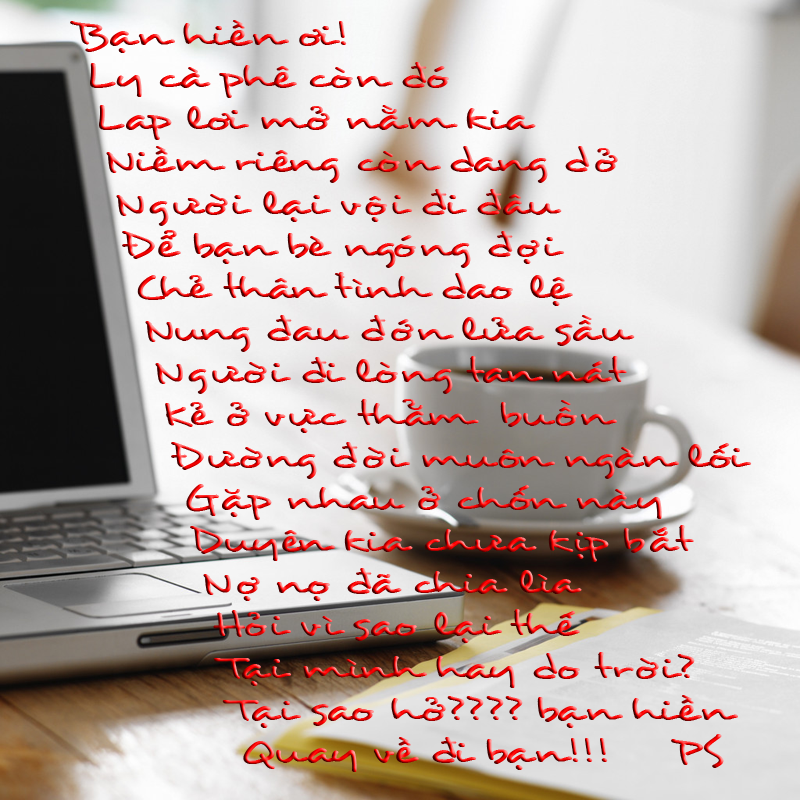 Bạn hiền ơi!
Ly cà phê còn đó
Lap lơi mở nằm kia
Niềm riêng còn dang dở
Người lại vội đi đâu
Để bạn bè ngóng đợi
Chẻ thân tình dao lệ
Nung đau đớn lửa sầu
Người đi lòng tan nát
Kẻ ở vực thẳm buồn
Đường đời muôn ngàn lối
Gặp nhau ở chốn này
Duyên kia chưa kịp bắt
Nợ nọ đã chia lìa
Hỏi vì sao lại thế
Tại mình hay do trời?
Tại sao hở???? bạn hiền
Quay về đi bạn!!! PS